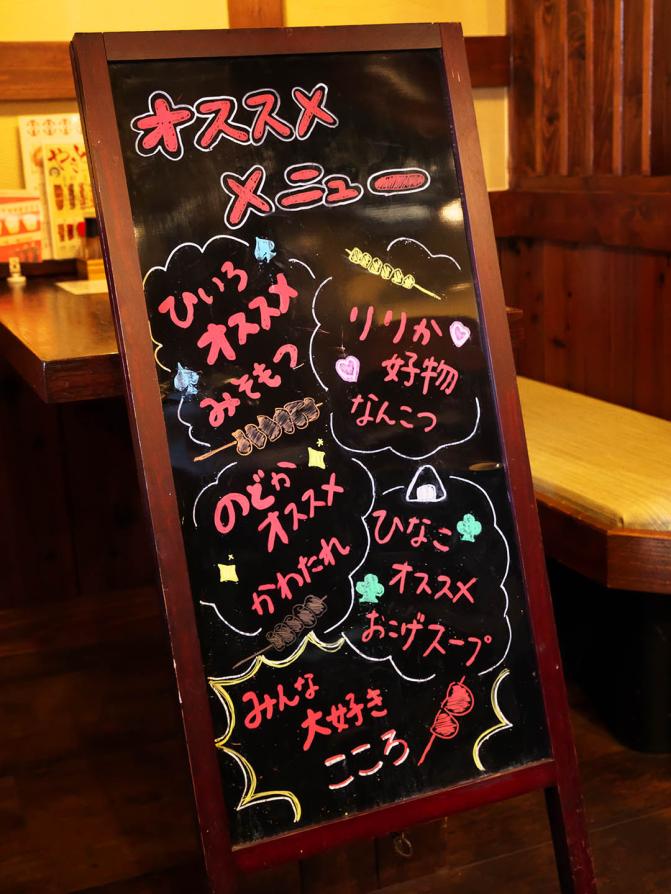 オススメ
メニュー
ひいろ
オススメ
みそもつ
りりか
好物
なんこつ
のどか
オススメ
かわたれ
ひなこ
オススメ
おこげスープ
みんな
大好き
こころ